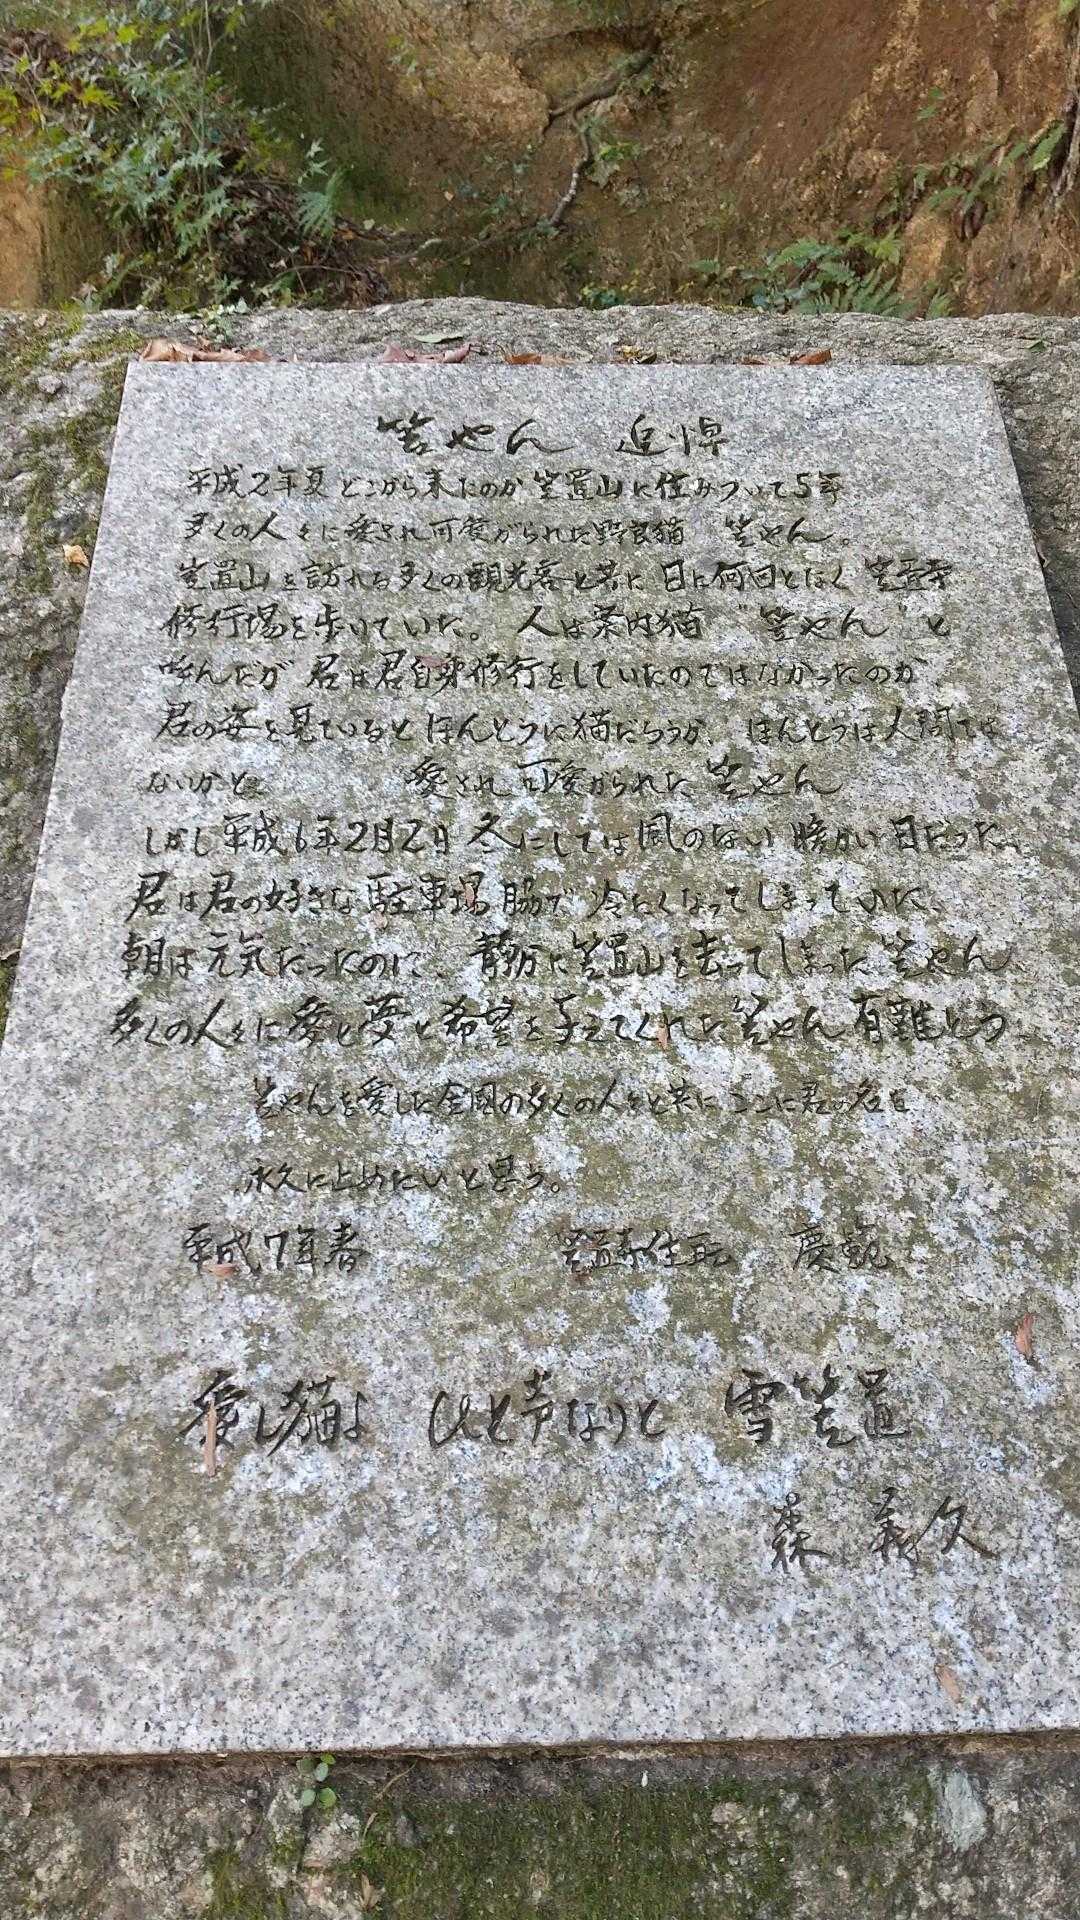 笠やん 追悼
平成2年夏 どこから来たのか 笠置山に住みついて5年
多くの人々に愛され可愛がられた野良猫 笠やん。
笠置山を訪れる多くの観光客と共に 日に何回となく 笠置寺
修行場を歩いていた。 人は案内猫 "笠やん" と
呼んだが 君は君自身修行をしていたのではなかったのか
君の姿を見ていると ほんとうに猫だろうか、 ほんとうは人間では
ないかと。 愛され 可愛がられた 笠やん
しかし平成6年2月2日 冬にしては風のない 暖かい日だった、
君は君の好きな 駐車場 脇で 冷たくなってしまっていた、
朝は元気だったのに、 に笠置山を去ってしまった 笠やん、
多くの人々に愛と夢と希望を与えてくれた笠やん 有難とう
笠やんを愛した全国の多くの人々と共に ここに君の名を
永久に止めたいと思う。
平成7年春 笠置寺住職 慶範
愛し猫よ ひと声なりと 雪笠置
森 義久